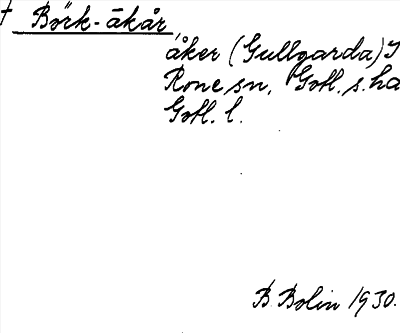 † Börk-åkår,
åker (Gullgarda)
Rone sn, Gotl. s. ha
Gotl. l.
B. Bolin 1930.